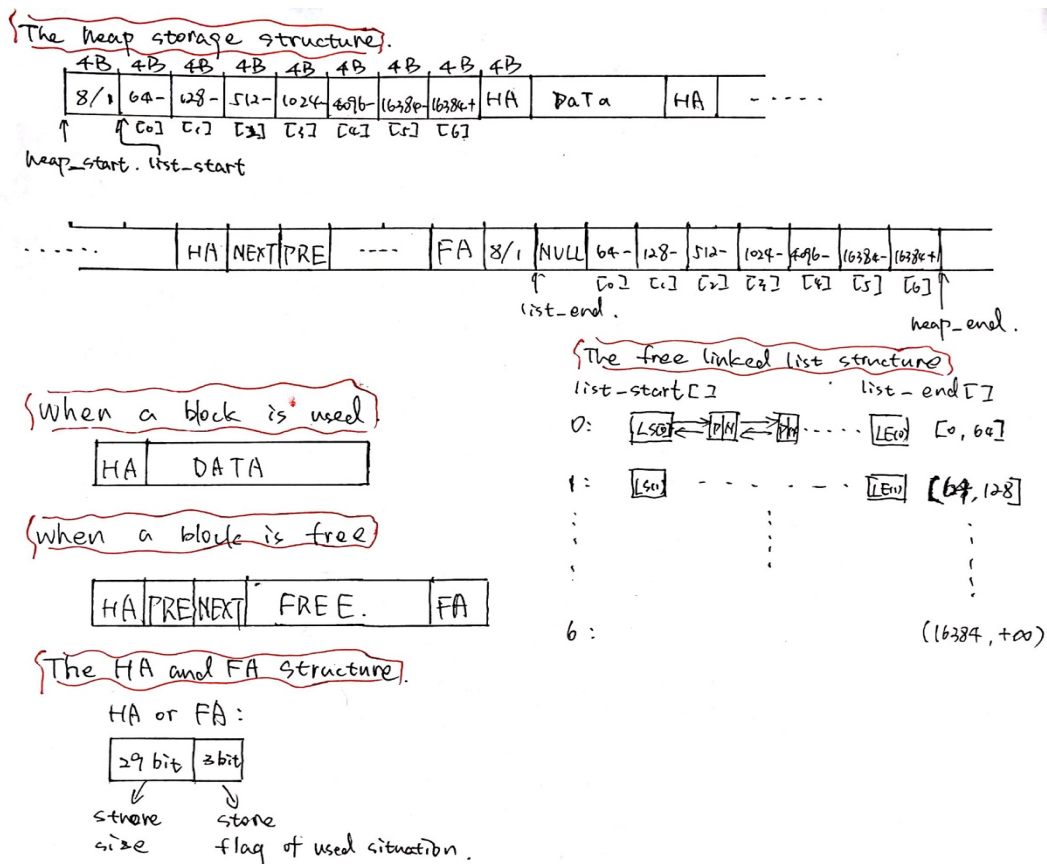 The heap storage structure.
4B 4B 4B 4B 4B 4B 4B 4B 4B
8/1 64- 128- 512- 1024- 4096- 16384- 16384+ HA DaTa HA .....
[0] [1] [2] [3] [4] [5] [6]
heap_start. list_start
...... HA NEXT PRE ---- FA 8/1 NULL 64- 128- 512- 1024- 4096- 16384- 16384+
[0] [1] [2] [3] [4] [5] [6]
list_end.
heap_end.
The free linked list structure
list-start[] list-end[]
0: LS(0) P N P N ...... LE(0) [0, 64]
1: LS(1) LE(1) [64, 128]
6: (16384, +∞)
When a block is used
HA DATA
when a block is free
HA PRE NEXT FREE. FA
The HA and FA Structure.
HA or FA:
29 bit 3 bit
store
size
store
flag of used situation.